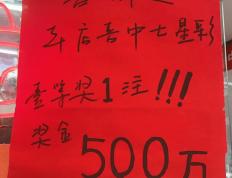 本店喜中七星彩
壹等奖1注!!!
奖金
500万